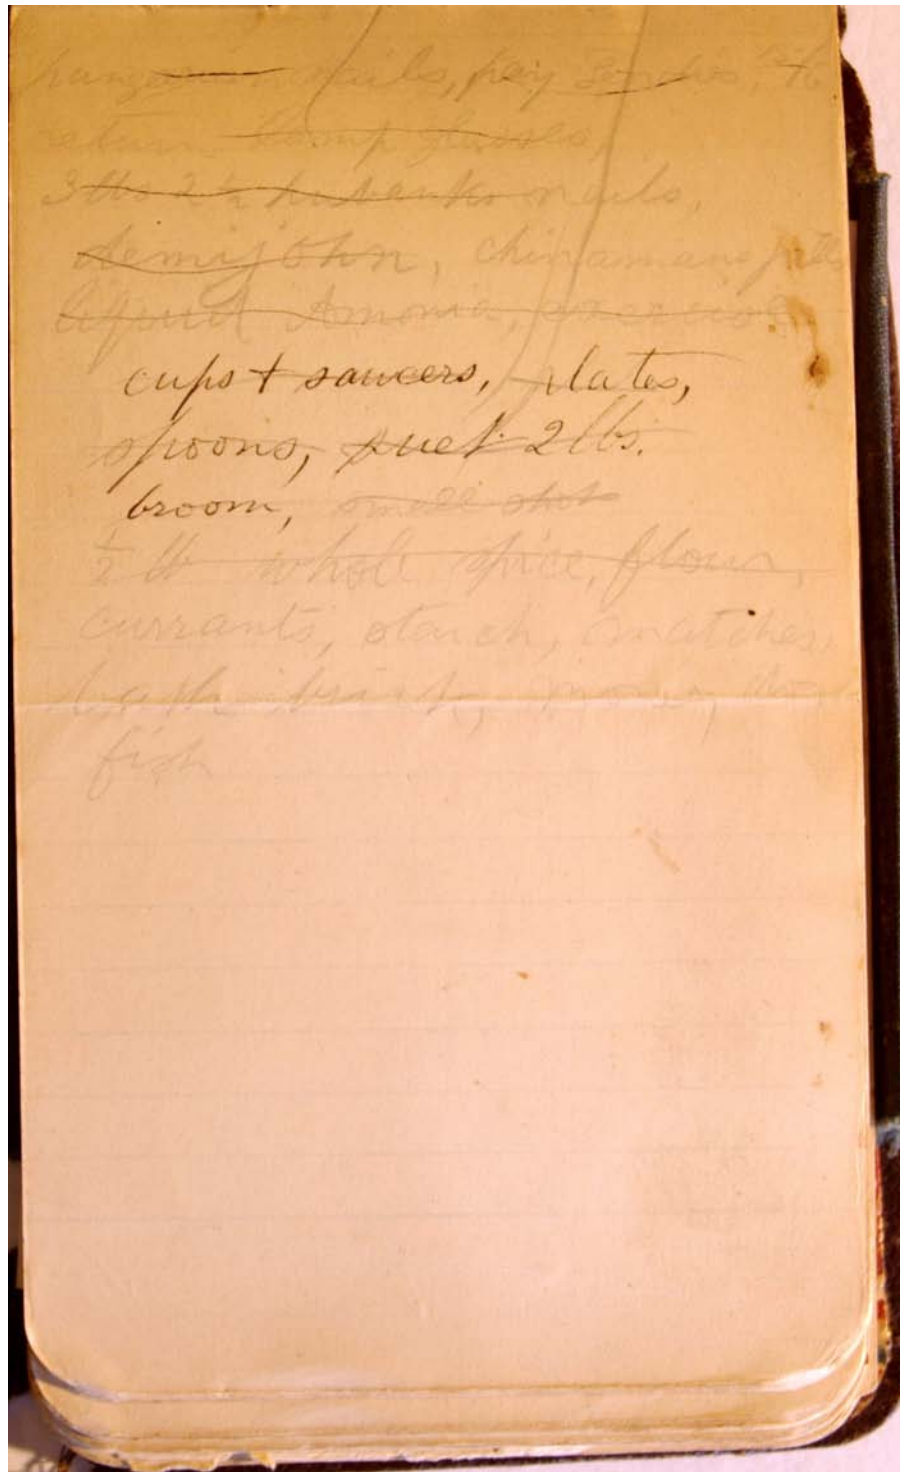 nails, pay
return lamp glasses,
3 lbs 2 ½ nails,
demijohn, chinamans
liquid Amonia,
cups + saucers, plates,
spoons, suet 2 lbs.
broom, small shot
½ lb whole spice, flour,
currants, starch, matches,
bath brick,
fish